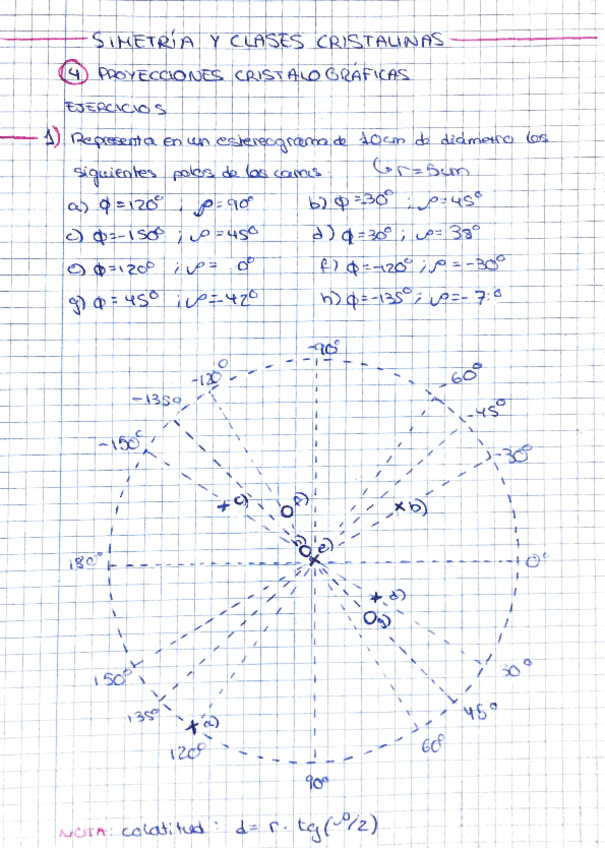 SIMETRÍA Y CLASES CRISTALINAS
4 PROYECCIONES CRISTALOGRÁFICAS
EJERCICIOS
1) Representa en un estereograma de 10cm de diámetro los
siguientes polos de las caras: ↳ r=5cm
a) Φ=120° ; ρ=90° b) Φ=-30° ; ρ=45°
c) Φ=-150° ; ρ=45° d) Φ=30° ; ρ=38°
e) Φ=120° ; ρ= 0° f) Φ=-120° ; ρ=-30°
g) Φ=45° ; ρ=-42° h) Φ=-135° ; ρ=-7°
-90°
-120° -60°
-135° -45°
-150° -30°
c) f) b)
h) e)
180° 0°
d)
g)
150° 30°
135° a) 45°
120° 60°
90°
NOTA: colatitud: d= r · tg(ρ/2)